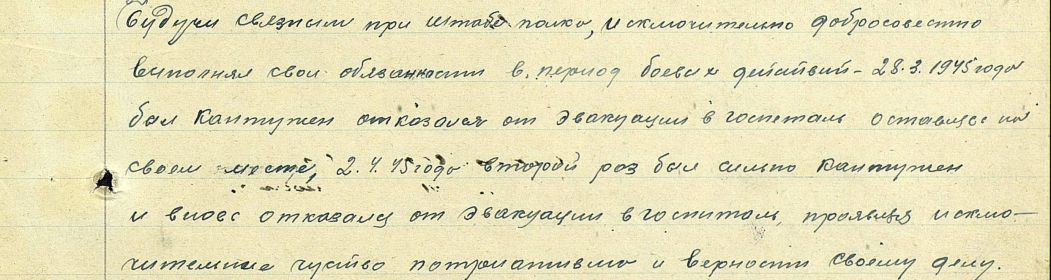 Будучи связным при штабе полка, исключительно добросовестно
выполнял свои обязанности в период боевых действий - 28.3.1945 года
был кантужен отказался от эвакуации в госпеталь оставшсс на
своем месте, 2.4.45 года второй раз был сильно кантужен
и вновс отказался от эвакуации в госпиталь, проявляя исклю-
чительные чуство потриативма и верности своему делу.